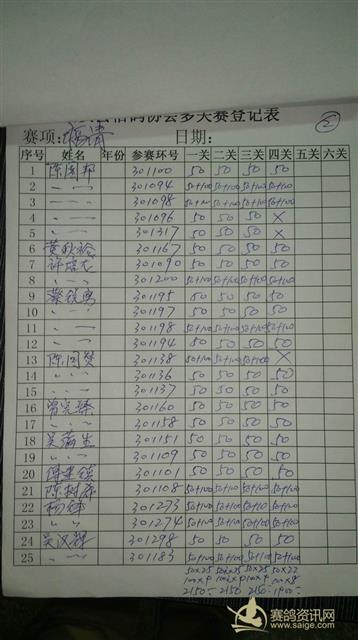 信鸽协会多关赛登记表
②
赛项: 福清 日期:
序号 姓名 年份 参赛环号 一关 二关 三关 四关 五关 六关
1 陈国邦 301100 50 50 50 50
2 〃 〃 301094 50+100 50+100 50+100 50+100
3 〃 〃 301098 50+100 50+100 50+100 50+100
4 〃 〃 301096 50 50 50 ×
5 〃 〃 301317 50 50 50 ×
6 301167 50 50 50 50
7 301090 50 50 50 50
8 〃 〃 301200 50+100 50+100 50+100 50+100
9 301195 50 50 50 50
10 〃 〃 301197 50 50 50 50
11 〃 〃 301198 50+100 50+100 50+100 50+100
12 〃 〃 301194 50 50 50 50
13 301138 50+100 50+100 50+100 ×
14 〃 〃 301136 50 50 50 50
15 〃 〃 301137 50 50 50 50
16 301160 50 50 50 50
17 〃 〃 301158 50 50 50 50
18 301151 50 50 50 50
19 〃 〃 301109 50 50 50 50
20 301101 50 50 50 50
21 301108 50+100 50+100 50+100 50+100
22 杨锋 301273 50+100 50+100 50+100 50+100
23 〃 〃 301274 50+100 50+100 50+100 50+100
24 吴汉辉 301298 50 50 50 50
25 〃 〃 301183 50 50 50+100 50+100
50×25 50×25 50×25 50×22
100×9 100×9 100×9 100×8
2150- 2150 2150- 1900-
赛鸽资讯网
www.saige.com